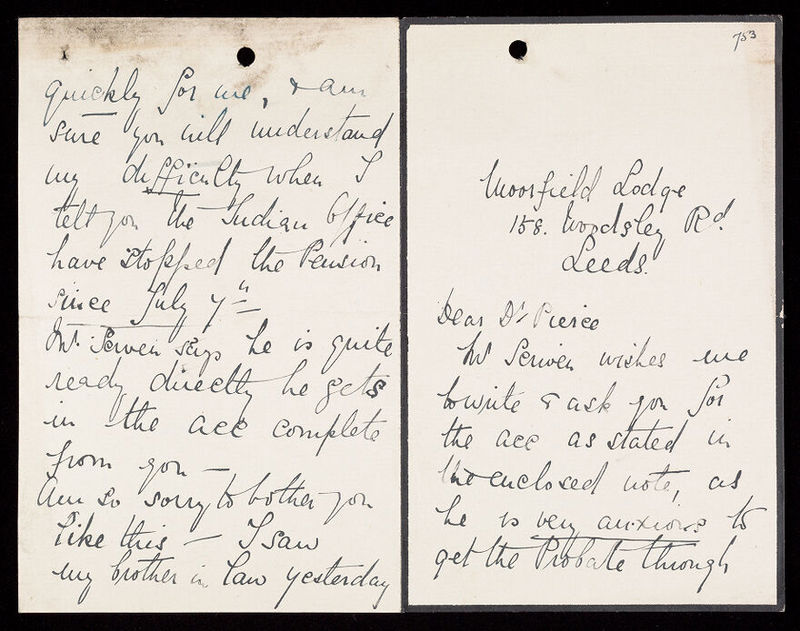 753
Moorfield Lodge
158. Woodsley Rd.
Leeds.
Dear Dr Pierce
Mr Scriven wishes me
to write & ask you for
the acc as stated in
the enclosed note, as
he is very anxious to
get the Probate through
quickly for me, & am
sure you will understand
my difficulty when I
tell you the Indian Office
have stopped the Pension
since July 4th
Mr. Scriven says he is quite
ready directly he gets
in the acc complete
from you —
Am so sorry to bother you
like this — I saw
my brother in law yesterday